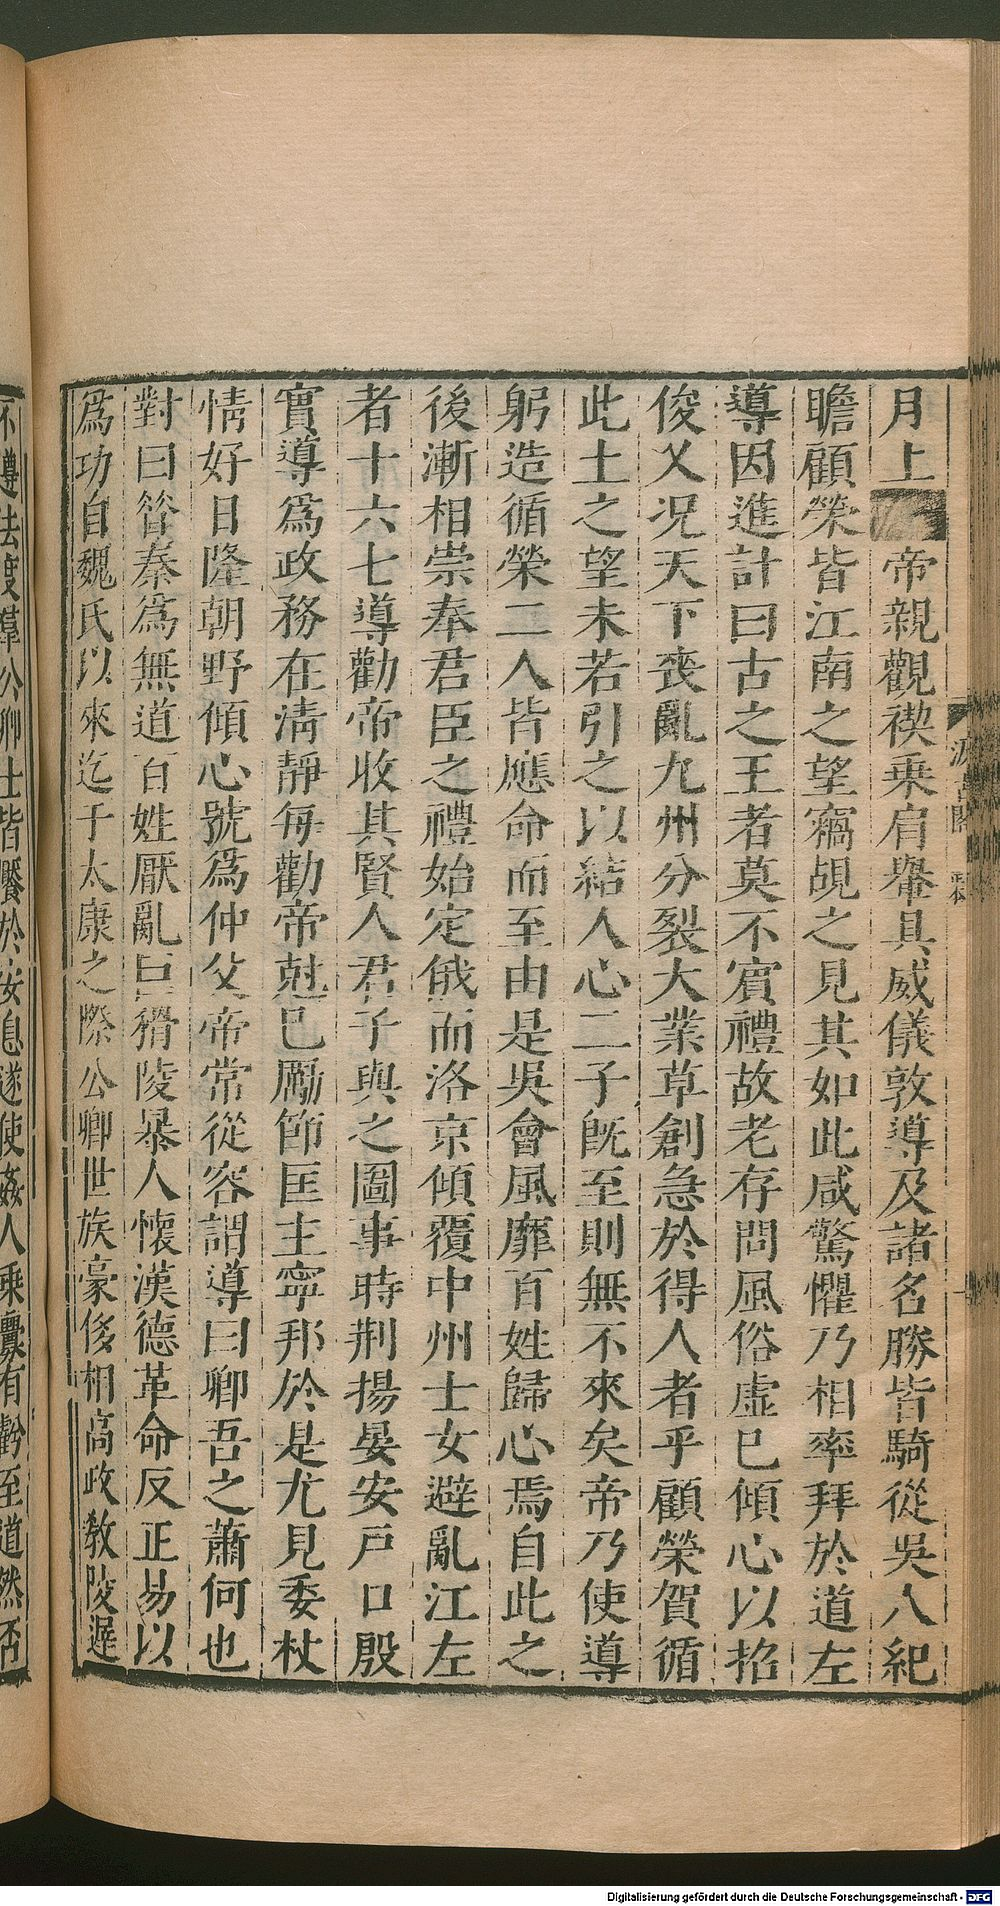 月上帝親觀禊乗肩轝具威儀敦導及諸名勝皆騎從吳人紀
瞻顧榮皆江南之望竊覘之見其如此咸驚懼乃相率拜於道左
導因進計曰古之王者莫不賓禮故老存問風俗虚已傾心以招
俊乂况天下喪亂九州分裂大業草創急於得人者乎顧榮賀循
此土之望未若引之以結人心二子旣至則無不來矣帝乃使導
躬造循榮二人皆應命而至由是吳會風靡百姓歸心焉自此之
後漸相崇奉君臣之禮始定俄而洛京傾覆中州士女避亂江左
者十六七導勸帝收其賢人君子與之圖事時荆揚晏安戶口殷
實導爲政務在淸靜每勸帝尅已勵節匡主寧邦於是尤見委杖
情好日隆朝野傾心號爲仲父帝常從容謂導曰卿吾之蕭何也
對曰昝秦爲無道百姓厭亂巨猾陵暴人懷漢德革命反正易以
爲功自魏氏以來迄于太康之際公卿世族豪侈相高政教陵遲
不遵法度羣公卿士皆饜於安息遂使姦人乘釁有虧至道然否
Digitalisierung gefördert durch die Deutsche Forschungsgemeinschaft - DFG